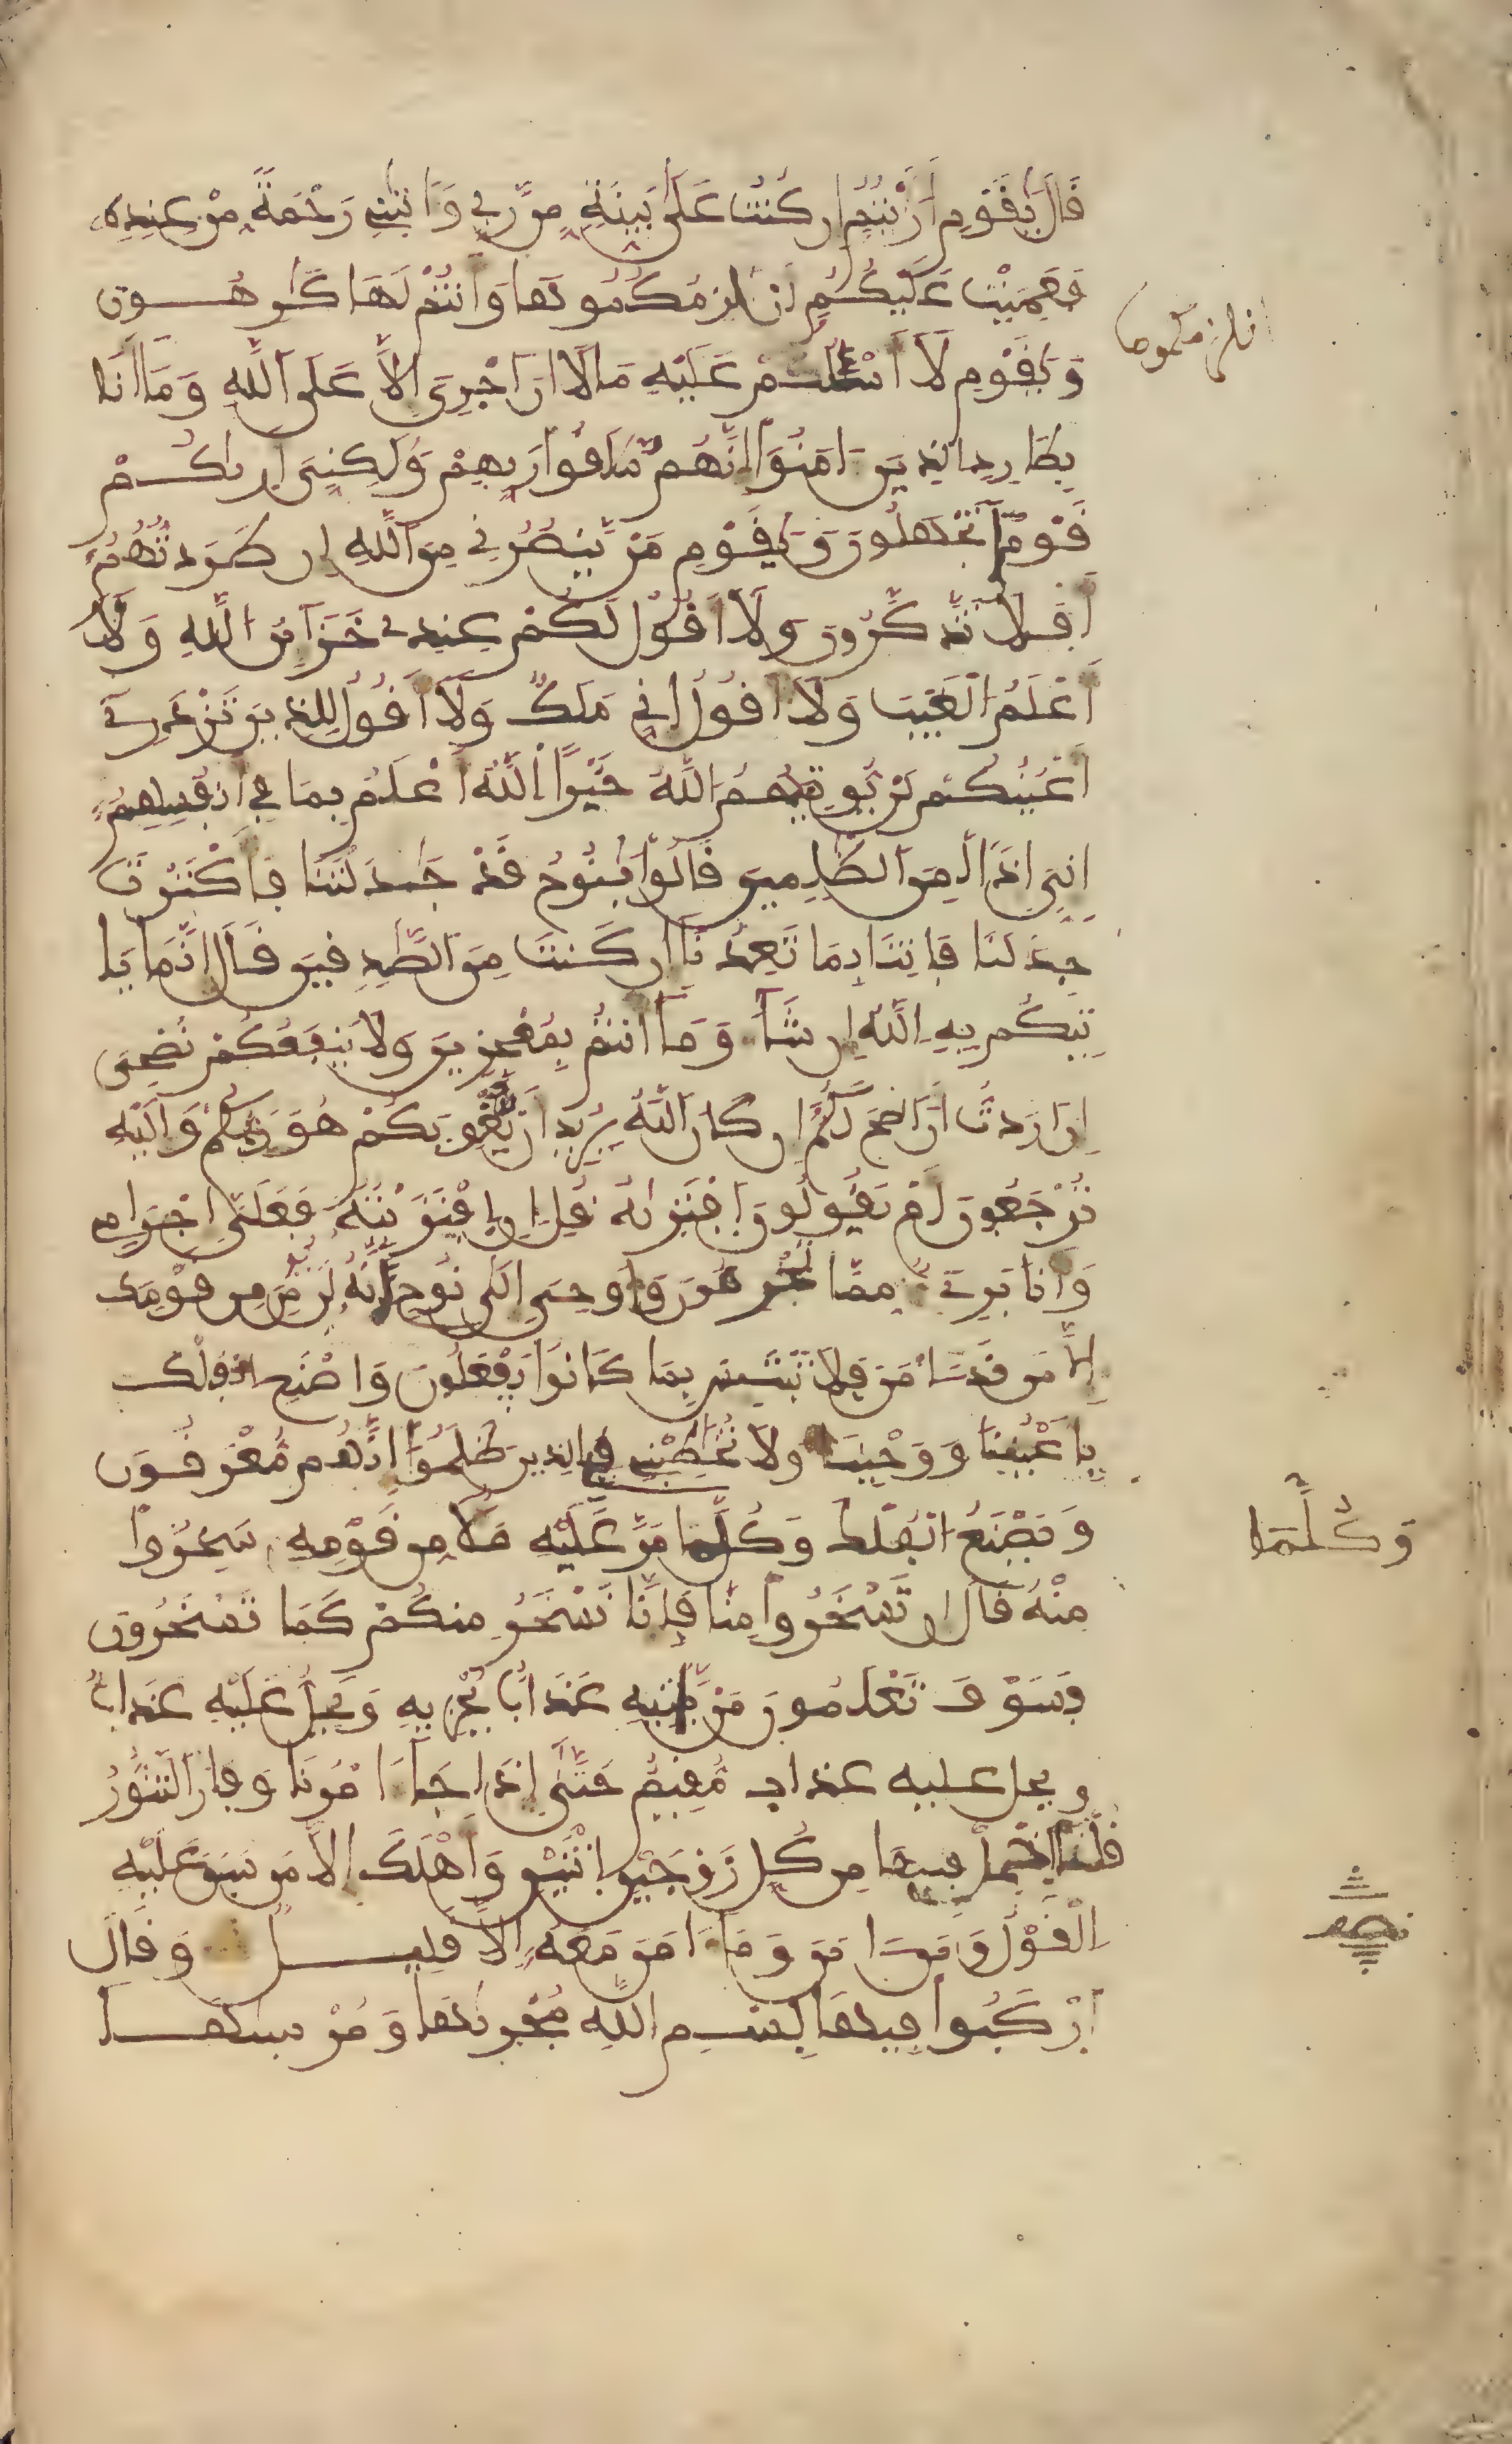 قَالَ يَٰقَوْمِ أَرَٰيْتُمُۥ إِن كُنتُ عَلَىٰ بَيِّنَةٍ مِّن رَّبِّي وَءَاتَىٰنِي رَحْمَةً مِّنْ عِندِهِۦ
فَعَمِيَتْ عَلَيْكُمُۥ أَنُلْزِمُكُمُوهَا وَأَنتُمْ لَهَا كَٰرِهُونَ
انلزمكموها
وَيَٰقَوْمِ لَا أَسْـَٔلُكُمْ عَلَيْهِ مَالًا إِنْ أَجْرِيَ إِلَّا عَلَى اللَّهِ وَمَا أَنَا
بِطَارِدِ الذِينَ ءَامَنُوا إِنَّهُم مُّلَٰقُوا رَبِّهِمْ وَلَٰكِنِّيَ أَرَىٰكُمْ
قَوْمًا تَجْهَلُونَ وَيَٰقَوْمِ مَنْ يَّنصُرُنِي مِنَ اللَّهِ إِن طَرَدتُّهُمُۥ
أَفَلَا تَذَّكَّرُونَ وَلَا أَقُولُ لَكُمْ عِندِي خَزَائِنُ اللَّهِ وَلَا
أَعْلَمُ الْغَيْبَ وَلَا أَقُولُ إِنِّي مَلَكٌ وَلَا أَقُولُ لِلذِينَ تَزْدَرِي
أَعْيُنُكُمْ لَنْ يُّوتِيَهُمُ اللَّهُ خَيْرًا اللَّهُ أَعْلَمُ بِمَا فِي أَنفُسِهِمُۥ
إِنِّيَ إِذًا لَّمِنَ الظَّٰلِمِينَ قَالُوا يَٰنُوحُ قَدْ جَٰدَلْتَنَا فَأَكْثَرْتَ
جِدَٰلَنَا فَاتِنَا بِمَا تَعِدُنَا إِن كُنتَ مِنَ الصَّٰدِقِينَ قَالَ إِنَّمَا يَا
تِيكُم بِهِ اللَّهُ إِن شَاءَ وَمَا أَنتُم بِمُعْجِزِينَ وَلَا يَنفَعُكُمْ نُصْحِيَ
إِنْ أَرَدتُّ أَنْ أَنصَحَ لَكُمُۥ إِن كَانَ اللَّهُ يُرِيدُ أَنْ يُّغْوِيَكُمْ هُوَ رَبُّكُمْ وَإِلَيْهِ
تُرْجَعُونَ أَمْ يَقُولُونَ افْتَرَىٰهُ قُلِ إِنِ افْتَرَيْتُهُۥ فَعَلَيَّ إِجْرَامِي
وَأَنَا بَرِيءٌ مِّمَّا تُجْرِمُونَ وَأُوحِيَ إِلَىٰ نُوحٍ أَنَّهُۥ لَنْ يُّومِنَ مِن قَوْمِكَ
إِلَّا مَن قَدَ ءَامَنَ فَلَا تَبْتَئِسْ بِمَا كَانُوا يَفْعَلُونَ وَاصْنَعِ الْفُلْكَ
بِأَعْيُنِنَا وَوَحْيِنَا وَلَا تُخَٰطِبْنِي فِي الذِينَ ظَلَمُوا إِنَّهُم مُّغْرَقُونَ
وَيَصْنَعُ الْفُلْكَ وَكُلَّمَا مَرَّ عَلَيْهِ مَلَأٌ مِّن قَوْمِهِۦ سَخِرُوا
وَكُلَّمَا
مِنْهُ قَالَ إِن تَسْخَرُوا مِنَّا فَإِنَّا نَسْخَرُ مِنكُمْ كَمَا تَسْخَرُونَ
فَسَوْفَ تَعْلَمُونَ مَنْ يَّاتِيهِ عَذَابٌ يُّخْزِيهِ وَيَحِلُّ عَلَيْهِ عَذَابٌ
ويحل عليه عذاب مُّقِيمٌ حَتَّىٰ إِذَا جَاءَ امْرُنَا وَفَارَ التَّنُّورُ
قُلْنَا احْمِلْ فِيهَا مِن كُلِّ زَوْجَيْنِ اثْنَيْنِ وَأَهْلَكَ إِلَّا مَن سَبَقَ عَلَيْهِ
الْقَوْلُ وَمَنَ ءَامَنَ وَمَا ءَامَنَ مَعَهُۥ إِلَّا قَلِيلٌ وَقَالَ
نصف
ارْكَبُوا فِيهَا بِسْمِ اللَّهِ مُجْر۪ىٰهَا وَمُرْسَىٰهَا